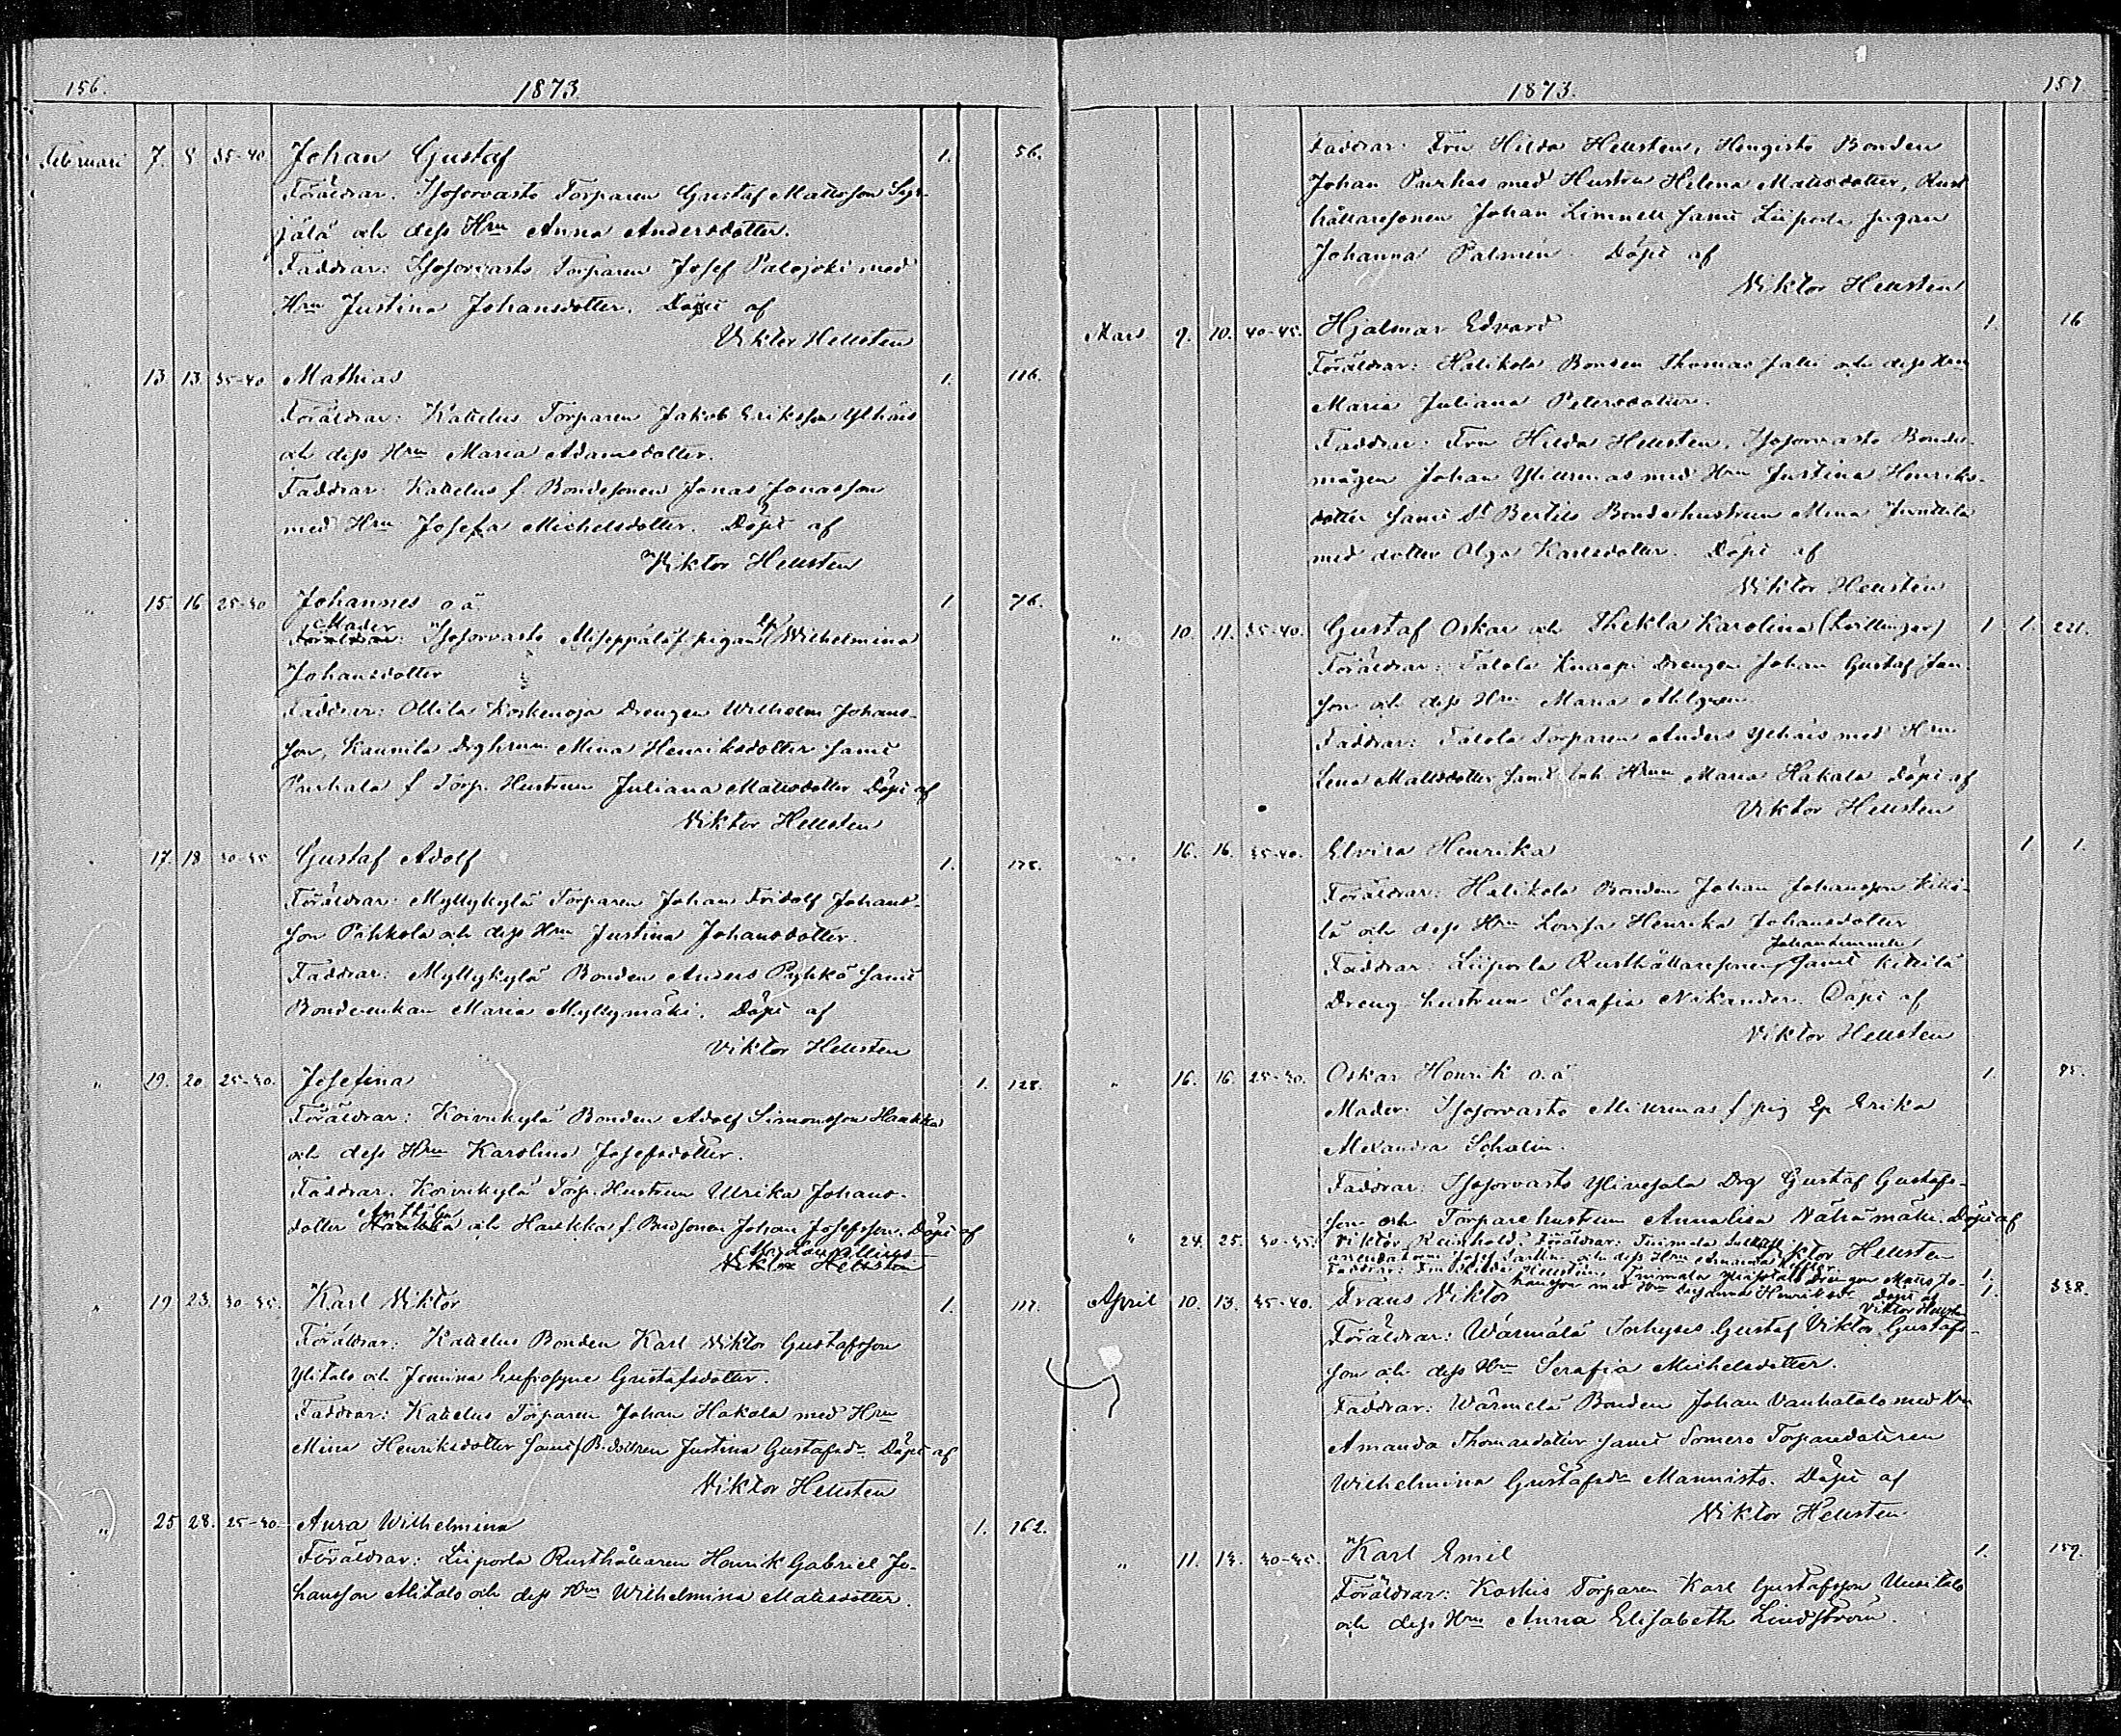 156.
1873.
Februari 7. 8 35-40. Johan Gustaf 1. 56.
Föräldrar: Isosorvasto Torparen Gustaf Mattsson Sep-
jälä och dess Hru Anna Andersdotter.
Faddrar: Isosorvasto Torparen Josef Palojoki med
Hru Justina Johansdotter. Döpt af
Viktor Hellsten
13. 13. 35-40 Mathias 1. 116.
Föräldrar: Kattelus Torparen Jakob Eriksson Ylhäis
och dess Hru Maria Adamsdotter.
Faddrar: Kattelus f. Bondesonen Jonas Jonasson
med Hru Josefa Michelsdotter. Döpt af
Viktor Hellsten
" 15. 16 25-30 Johannes o.ä. 1. 76.
Moder: Isosorvasto f. pigan Wilhelmina
Johansdotter
Faddrar: Ollila Koskenoja Drengen Wilhelm Johans-
son, Kaunila drghrun Mina Henriksdotter samt
f Torp. Hustrun Juliana Mattsdotter Döpt af
Viktor Hellsten
" 17. 18 30-35 Gustaf Adolf 1. 178.
Föräldrar: Myllykylä Torparen Johan Fridolf Johans-
son Pihkola och dess Hru Justina Johansdotter.
Faddrar: Myllykylä Bonden Anders Pyhkö samt
Bondeenkan Maria Myllymäki. Döpt af
Viktor Hellsten
" 19. 20 25-30. Josefina 1. 128.
Föräldrar: Koivukylä Bonden Adolf Simonsson Haukka
och dess Hru Karolina Josefsdotter.
Faddrar. Koivukylä Torp. Hustrun Ulrika Johans-
dotter Anttila och Haukka f. Bndsonen Johan Josefsson. Döpt af
Viktor Hellsten
" 19 23. 30-35. Karl Viktor 1. 117.
Föräldrar: Kattelus Bonden Karl Viktor Gustafsson
Ylitalo och Jemina Eufrosyne Gustafsdotter.
Faddrar: Kattelus Torparen Johan Hakala med Hru
Mina Henriksdotter samt B.dottren Justina Gustafsdr Döpt af
Viktor Hellsten
" 25 28. 25-30 Aura Wilhelmina 1. 162.
Föräldrar: Liiporla Rusthållaren Henrik Gabriel Jo-
hansson Alitalo och dess Hru Wilhelmina Mattsdotter.
1873.
157
Faddrar: Fru Hilda Hellsten, Hengisto Bonden
Johan Parkas med Hustru Helena Mattsdotter, Rust-
hållaresonen Johan Limnell samt Liiporla pigan
Johanna Palmén. Döpt af
Viktor Hellsten
Mars 9. 10. 40-45. Hjalmar Edvard 1. 16
Föräldrar: Halikola Bonden Thomas Jalli och dess Hru
Maria Juliana Petersdotter.
Faddrar: Fru Hilda Hellsten, Isosorvasto Bonde-
mågen Johan med Hru Justina Henriks-
dotter samt St Bertils Bondehustrun Mina Junttila
med dotter Olga Karlsdotter. Döpt af
Viktor Hellsten
" 10. 11. 35-40. Gustaf Oskar och Thekla Karolina (tvillingar) 1 1. 221.
Föräldrar: Talola Knaapi Drengen Johan Gustaf Jan-
son och dess Hru Maria Ahlgren
Faddrar: Talola Torparen Anders Ylhäis med Hru
Lena Mattsdotter samt Inh Hrun Maria Hakala Döpt af
Viktor Hellsten
" 16. 16. 35-40. Elvira Henrika 1 1.
Föräldrar: Halikola Bonden Johan Johansson Kitti-
lä och dess Hru Lovisa Henrika Johansdotter
Johan Limnell
Faddrar: Liiporla Rusthållaresonen samt Kittilä
Dreng hustrun Serafia Nikander. Döpt af
Viktor Hellsten
" 16. 16. 25-30. Oskar Henrik o.ä. 1. 95.
Moder. Isosorvasto f pig Ep Erika
Alexandra Schalin.
Faddrar: Isosorvasto Ylinejala Drg Gustaf Gustafs-
son och Torparehustrun Annalisa Näträmäki. Döpt af
Viktor Hellsten
" 24. 25. 30-35. Viktor Reinhold. Föräldrar: 1.
April 10. 13. 35-40. Frans Viktor 1. 338.
Döpt af
Viktor Hellsten
Föräldrar: Wärmälä Inhyses Gustaf Viktor Gustafs-
son och dess Hru Serafia Michelsdotter.
Faddrar: Wärmelä Bonden Johan Vanhatalo med Hru
Amanda Thomasdotter samt Somero Torparedottren
Wilhelmina Gustafsdr Mannisto. Döpt af
Viktor Hellsten
" 11. 13. 30-35. Karl Emil 1. 159.
Föräldrar: Koskis Torparen Karl Gustafsson Uusitalo
och dess Hru Anna Elisabeth Lindström.